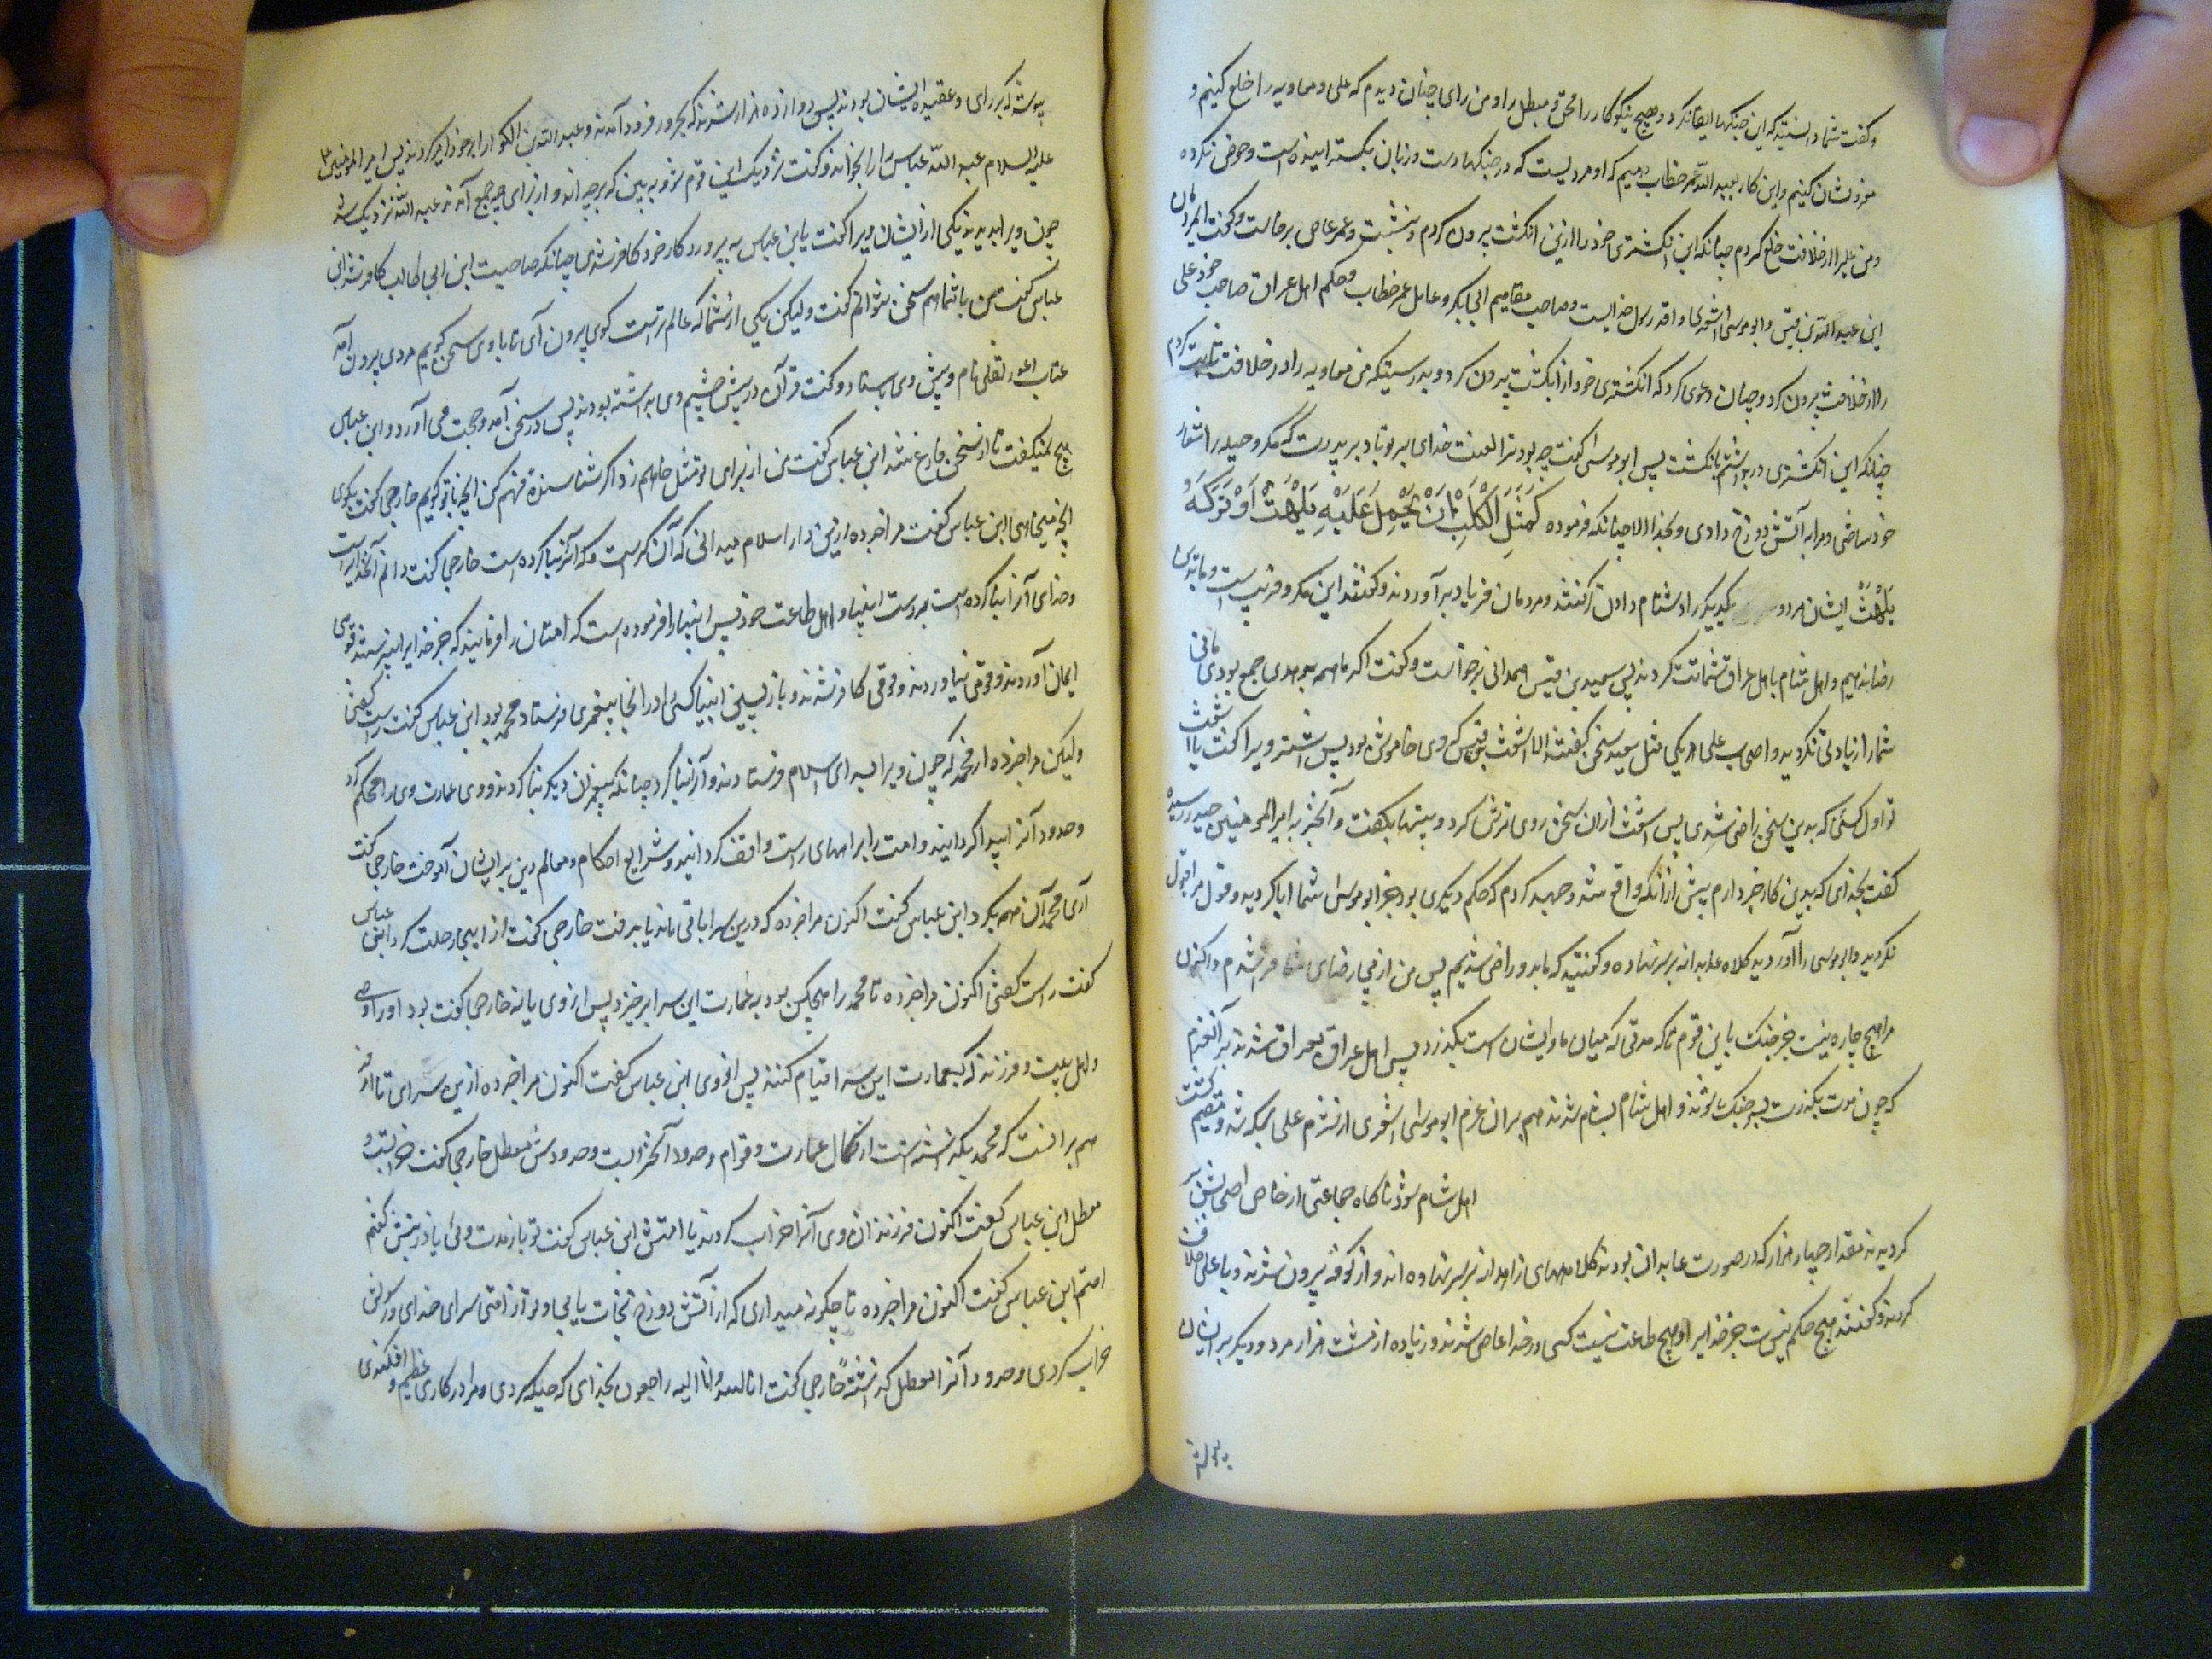 و گفت شما دانسته که این جنگها ابقا نکرد و هیچ نیکوکار را محق و مبطل را و من رای چنان دیدم که علی و معاویه را خلع کنیم و
معزولشان کنیم و این کار بعبد الله عمر خطاب دهیم که او مردیست که در جنگها دست و زبان نگسترانیده است و خوض نکرده
و من علیرا از خلافت خلع کردم چنانکه این انگشتری خود را ازین انگشت بیرون کردم و بنشست و عمرو عاص برخاست و گفت ایمردمان
این عبد الله بن قیس و ابو موسی اشعری وافد رسول خداست و صاحب مقاسم ابی بکر و عامل عمر خطاب و حکم اهل عراق صاحب خود علی
را از خلافت بیرون کرد و چنان دعوی کرد که انگشتری خود از انگشت بیرون کرد و بدرستیکه من معاویه را در خلافت ثابت کردم
چنانکه این انگشتری در انگشت پس ابو موسی گفت چه بود ترا لعنت خدای بر تو باد بدرستی که مکر و حیله را شعار
خود ساختی و مرا به آتش دوزخ دادی و بخدا الا چنانکه فرموده کمثل الکلب ان تحمل علیه یلهث او تترکه
یلهث ایشان هر دو یکدیگر را دشنام دادن گرفتند و مردمان فریاد برآوردند و گفتند این مکر و فریب است و ما بدین
رضا ندهیم و اهل شام باهل عراق شماتت کردند پس سعید بن قیس همدانی برخواست و گفت اگر ما همه بر هدی جمع بودی مانی
شما را زیادتی نکردید و اصحاب علی هر یکی مثل سعید سخن گفتند الا اشعث بن قیس که وی خاموش بود پس اشتر ویرا گفت یا اشعث
تو اول کسی که بدین سخن راضی شدی پس اشعث ازان سخن روی ترش کرد و بیتها بگفت و آنخبر به امیر المومنین حیدر رسیده
گفت بخدای که بدین کار خبر دارم پیش ازآنکه واقع شد و جهد کردم که حکم دیگری بود بجز ابو موسی شما ابا کردید و قول مرا قبول
نکردید و ابو موسی را آوردید کلاه عابدانه بر سر نهاده و گفتید که ما بدو راضی شدیم پس من از پی رضای شما فرستادم و اکنون
مرا هیچ چاره نیست جز جنگ باین قوم تا که مدتی که میان ما و ایشان است بگذرد پس اهل عراق بعراق شدند بر آنعزم
که چون مدت بگذرد بر جنگ شوند و اهل شام بشام شدند هم بران عزم ابو موسی اشعری از شرم علی بمکه شد و مقیم گشت
اهل شام شود ناگاه جماعتی از خاص اصحابش بر
گردیدند مقدار چهار هزار که در صورت عابدان بودند کلاههای زاهدانه بر سر نهاده اند و از کوفه بیرون شدند و با علی خلاف
کردند و گفتند هیچ حکم نیست جز خدایرا و هیچ طاعت نیست کسی در خدا عاصی شدند و زیاده از هشت هزار مرد دیگر بر ایشان
پیوستند که بر رای و عقیده ایشان بودند پس دوازده هزار شدند که بحرورا فرود آمدند و عبد الله بن الکوا را بر خود امیر کردند پس امیر المومنین علی
علیه السلام عبد الله عباس را بخواند و گفت نزدیک این قوم شو و ببین که برچه اند و از برای چه جمع آمدند عبد الله نزدیک شد
چون ویرا بدیدند یکی از ایشان ویرا گفت یا ابن عباس به پروردگار خود کافر شدی چنانکه صاحبت ابن ابی طالب کافر شد ابن
عباس گفت من با شما هم سخن نتوانم گفت و لیکن یکی از شما که عالم تر است گوی بیرون آی تا با وی سخن گویم مردی بیرون آمد
عتاب اعور ثعلبی نام و پیش وی باستاد و گفت قرآن در پیش چشم وی بداشته بودند پس در سخن آمد و حجت می آورد و ابن عباس
هیچ نمیگفت تا از سخن فارغ شد ابن عباس گفت من از برای تو مثل خواهم زد اگر شناسنده فهم کن آنچه با تو گویم خارجی گفت بگوی
آنچه میخواهی ابن عباس گفت مرا خبر ده ازین دار اسلام میدانی که آن کراست و که آنرا بنا کرده است خارجی گفت دانم آنخدایراست
و خدای آنرا بنا کرده است بر دست انبیا و اهل طاعت خود پس انبیا را فرموده است که امتان را فرمایند که جز خدایرا نپرستند قومی
ایمان آوردند و قومی نیاوردند و قومی کافر شدند و باز پسین انبیا کسی را در آنجا بپیغمبری فرستاد محمد بود ابن عباس گفت راست گفتی
و لیکن مرا خبر ده از محمد که چون ویرا بسرای اسلام فرستادند و آنرا بنا کرد چنانکه پیغمبران دیگر بنا کردند و وی عمارت وی را محکم کرد
و حدود آنرا پیدا گردانید و امت را براههای راست واقف گردانید و شرایع احکام و معالم دین بر ایشان آموخت خارجی گفت
آری محمد آن همه بکرد ابن عباس گفت اکنون مرا خبر ده که درین سرا باقی ماند یا برفت خارجی گفت از اینجا رحلت کرد ابن عباس
گفت راست گفتی اکنون مرا خبر ده تا محمد را هیچکس بود بر عمارت این سرا برخیزد پس از وی یا نه خارجی گفت بود او را وصی
و اهل بیت و فرزند که بعمارت این سرا قیام کنند پس از وی ابن عباس گفت اکنون مرا خبر ده ازین سرای تا امروز
هم برانست که محمد بگذاشته است از کمال عمارت و قوام و حدود یا آنخرابست و حدودش معطل خارجی گفت خرابست و
معطل ابن عباس گفت اکنون فرزندان وی آنرا خراب کردند یا امتش ابن عباس گفت تو از امت وئی یا ذریتش گفتم
امتم ابن عباس گفت اکنون مرا خبر ده تا چگونه میداری که از آتش دوزخ نجات یابی و تو از امتی سرای خدای و رسولش
خراب کردی و حدود آنرا معطل گذاشته خارجی گفت انا لله و انا الیه راجعون بخدای که حیله کردی و مرا در کاری عظیم افکندی و